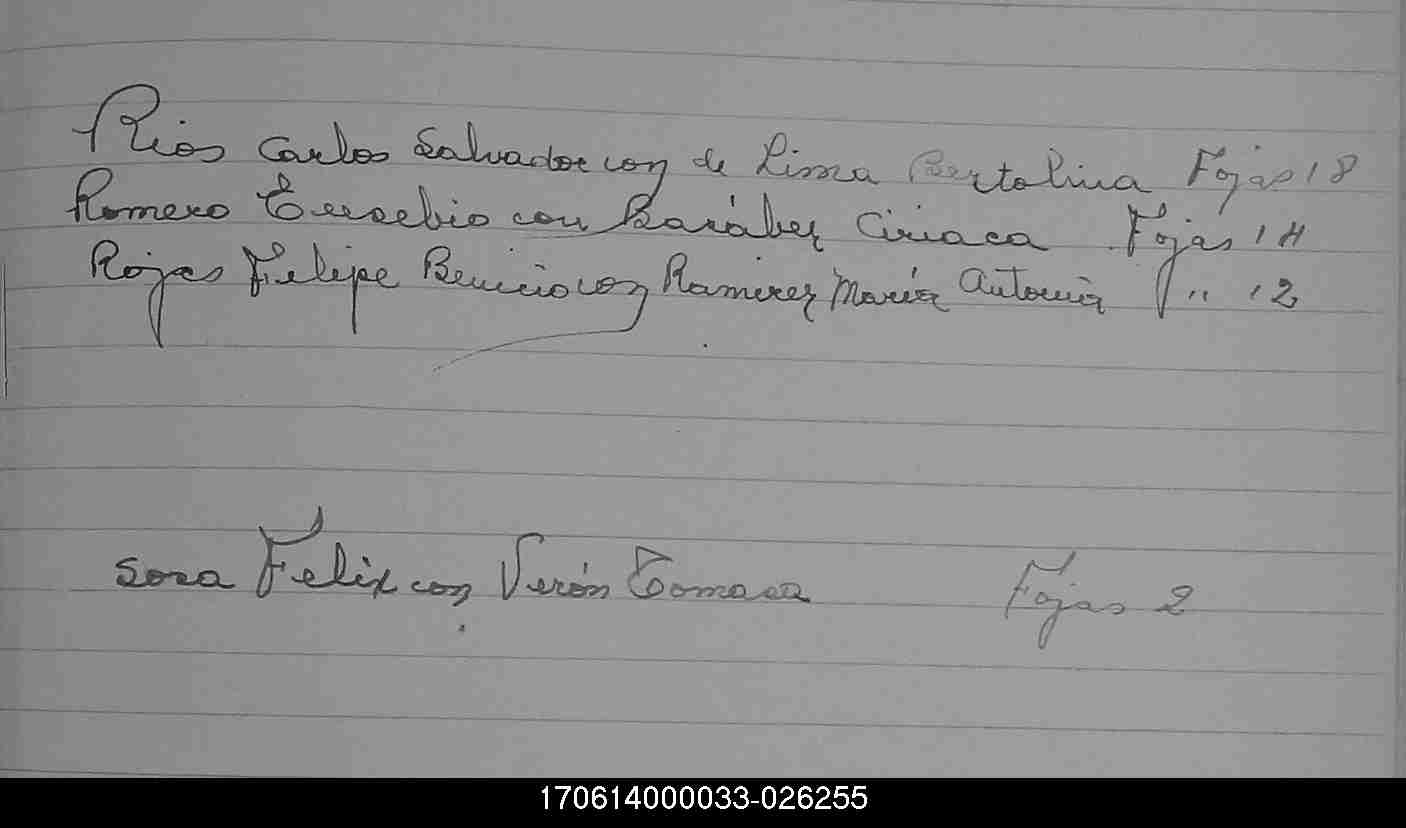 Rios Carlos Salvador con de Lima Bertolina Fojas 18
Romero Eusebio con Baráber Ciriaca Fojas 14
Rojas Felipe Benicio con Ramirez María Antonia " 12
Sosa Felix con Verón Tomasa Fojas 2
170614000033-026255